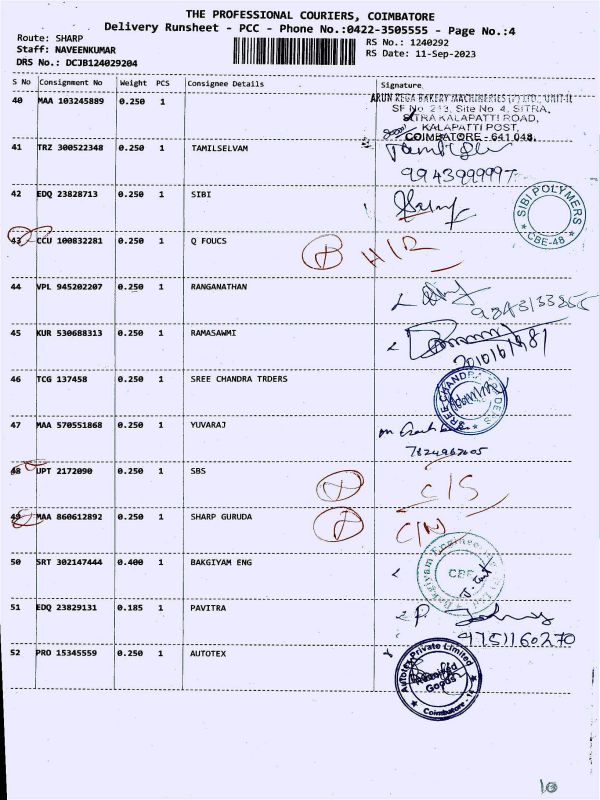 THE PROFESSIONAL COURIERS, COIMBATORE
Delivery Runsheet - PCC - Phone No.:0422-3505555 - Page No.:4
Route: SHARP
Staff: NAVEENKUMAR
DRS No.: DCJB124029204
RS No.: 1240292
RS Date: 11-Sep-2023
S No Consignment No Weight PCS Consignee Details Signature
40 MAA 103245889 0.250 1
ARUN REGA BAKERY MACHINERIES (P) LTD., UNIT-II
SF No. 213, Site No. 4, SITRA,
SITRA KALAPATTI ROAD,
KALAPATTI POST,
COIMBATORE - 641 048.
41 TRZ 300522348 0.250 1 TAMILSELVAM
9943999997
42 EDQ 23828713 0.250 1 SIBI
SIBI POLYMERS
CBE-48
43 CCU 100832281 0.250 1 Q FOUCS
44 VPL 945202207 0.250 1 RANGANATHAN
45 KUR 530688313 0.250 1 RAMASAWMI
46 TCG 137458 0.250 1 SREE CHANDRA TRDERS
47 MAA 570551868 0.250 1 YUVARAJ
7824967605
48 UPT 2172090 0.250 1 SBS
C/S
49 MAA 860612892 0.250 1 SHARP GURUDA
C/N
50 SRT 302147444 0.400 1 BAKGIYAM ENG
CBE
51 EDQ 23829131 0.185 1 PAVITRA
9751160270
52 PRO 15345559 0.250 1 AUTOTEX
Autotex Private Limited
Received
Goods
Coimbatore - 14
10